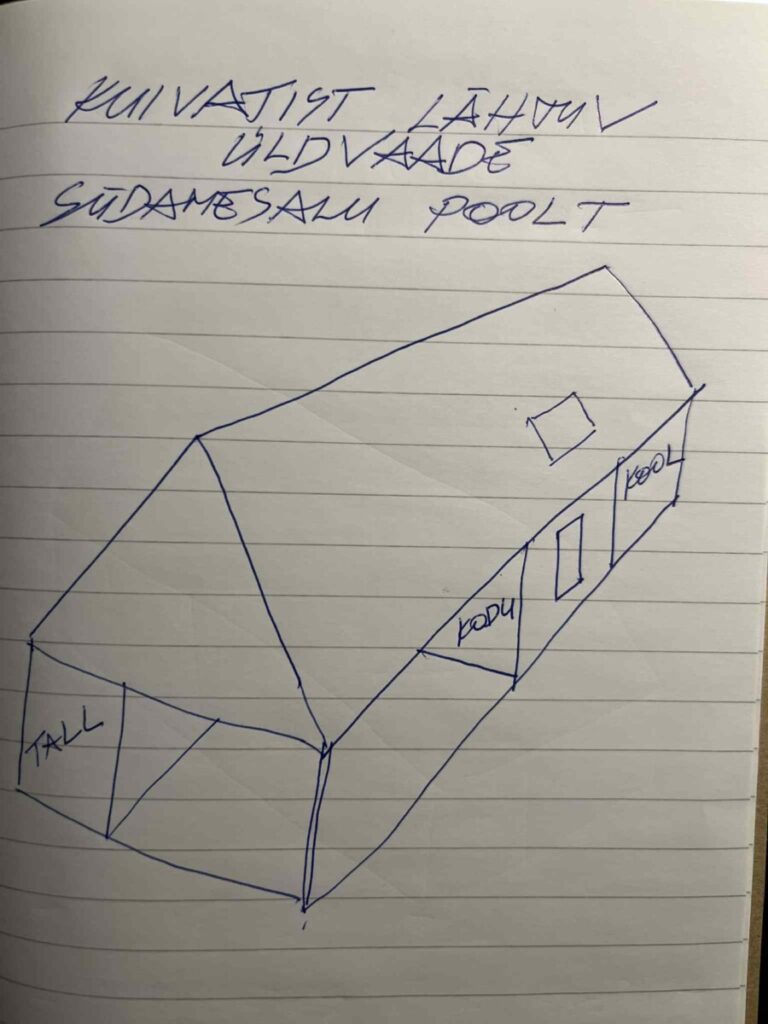 KUIVATIST LÄHTUV
ÜLDVAADE
SÜDAMESALU POOLT
KOOL
KODU
TALL